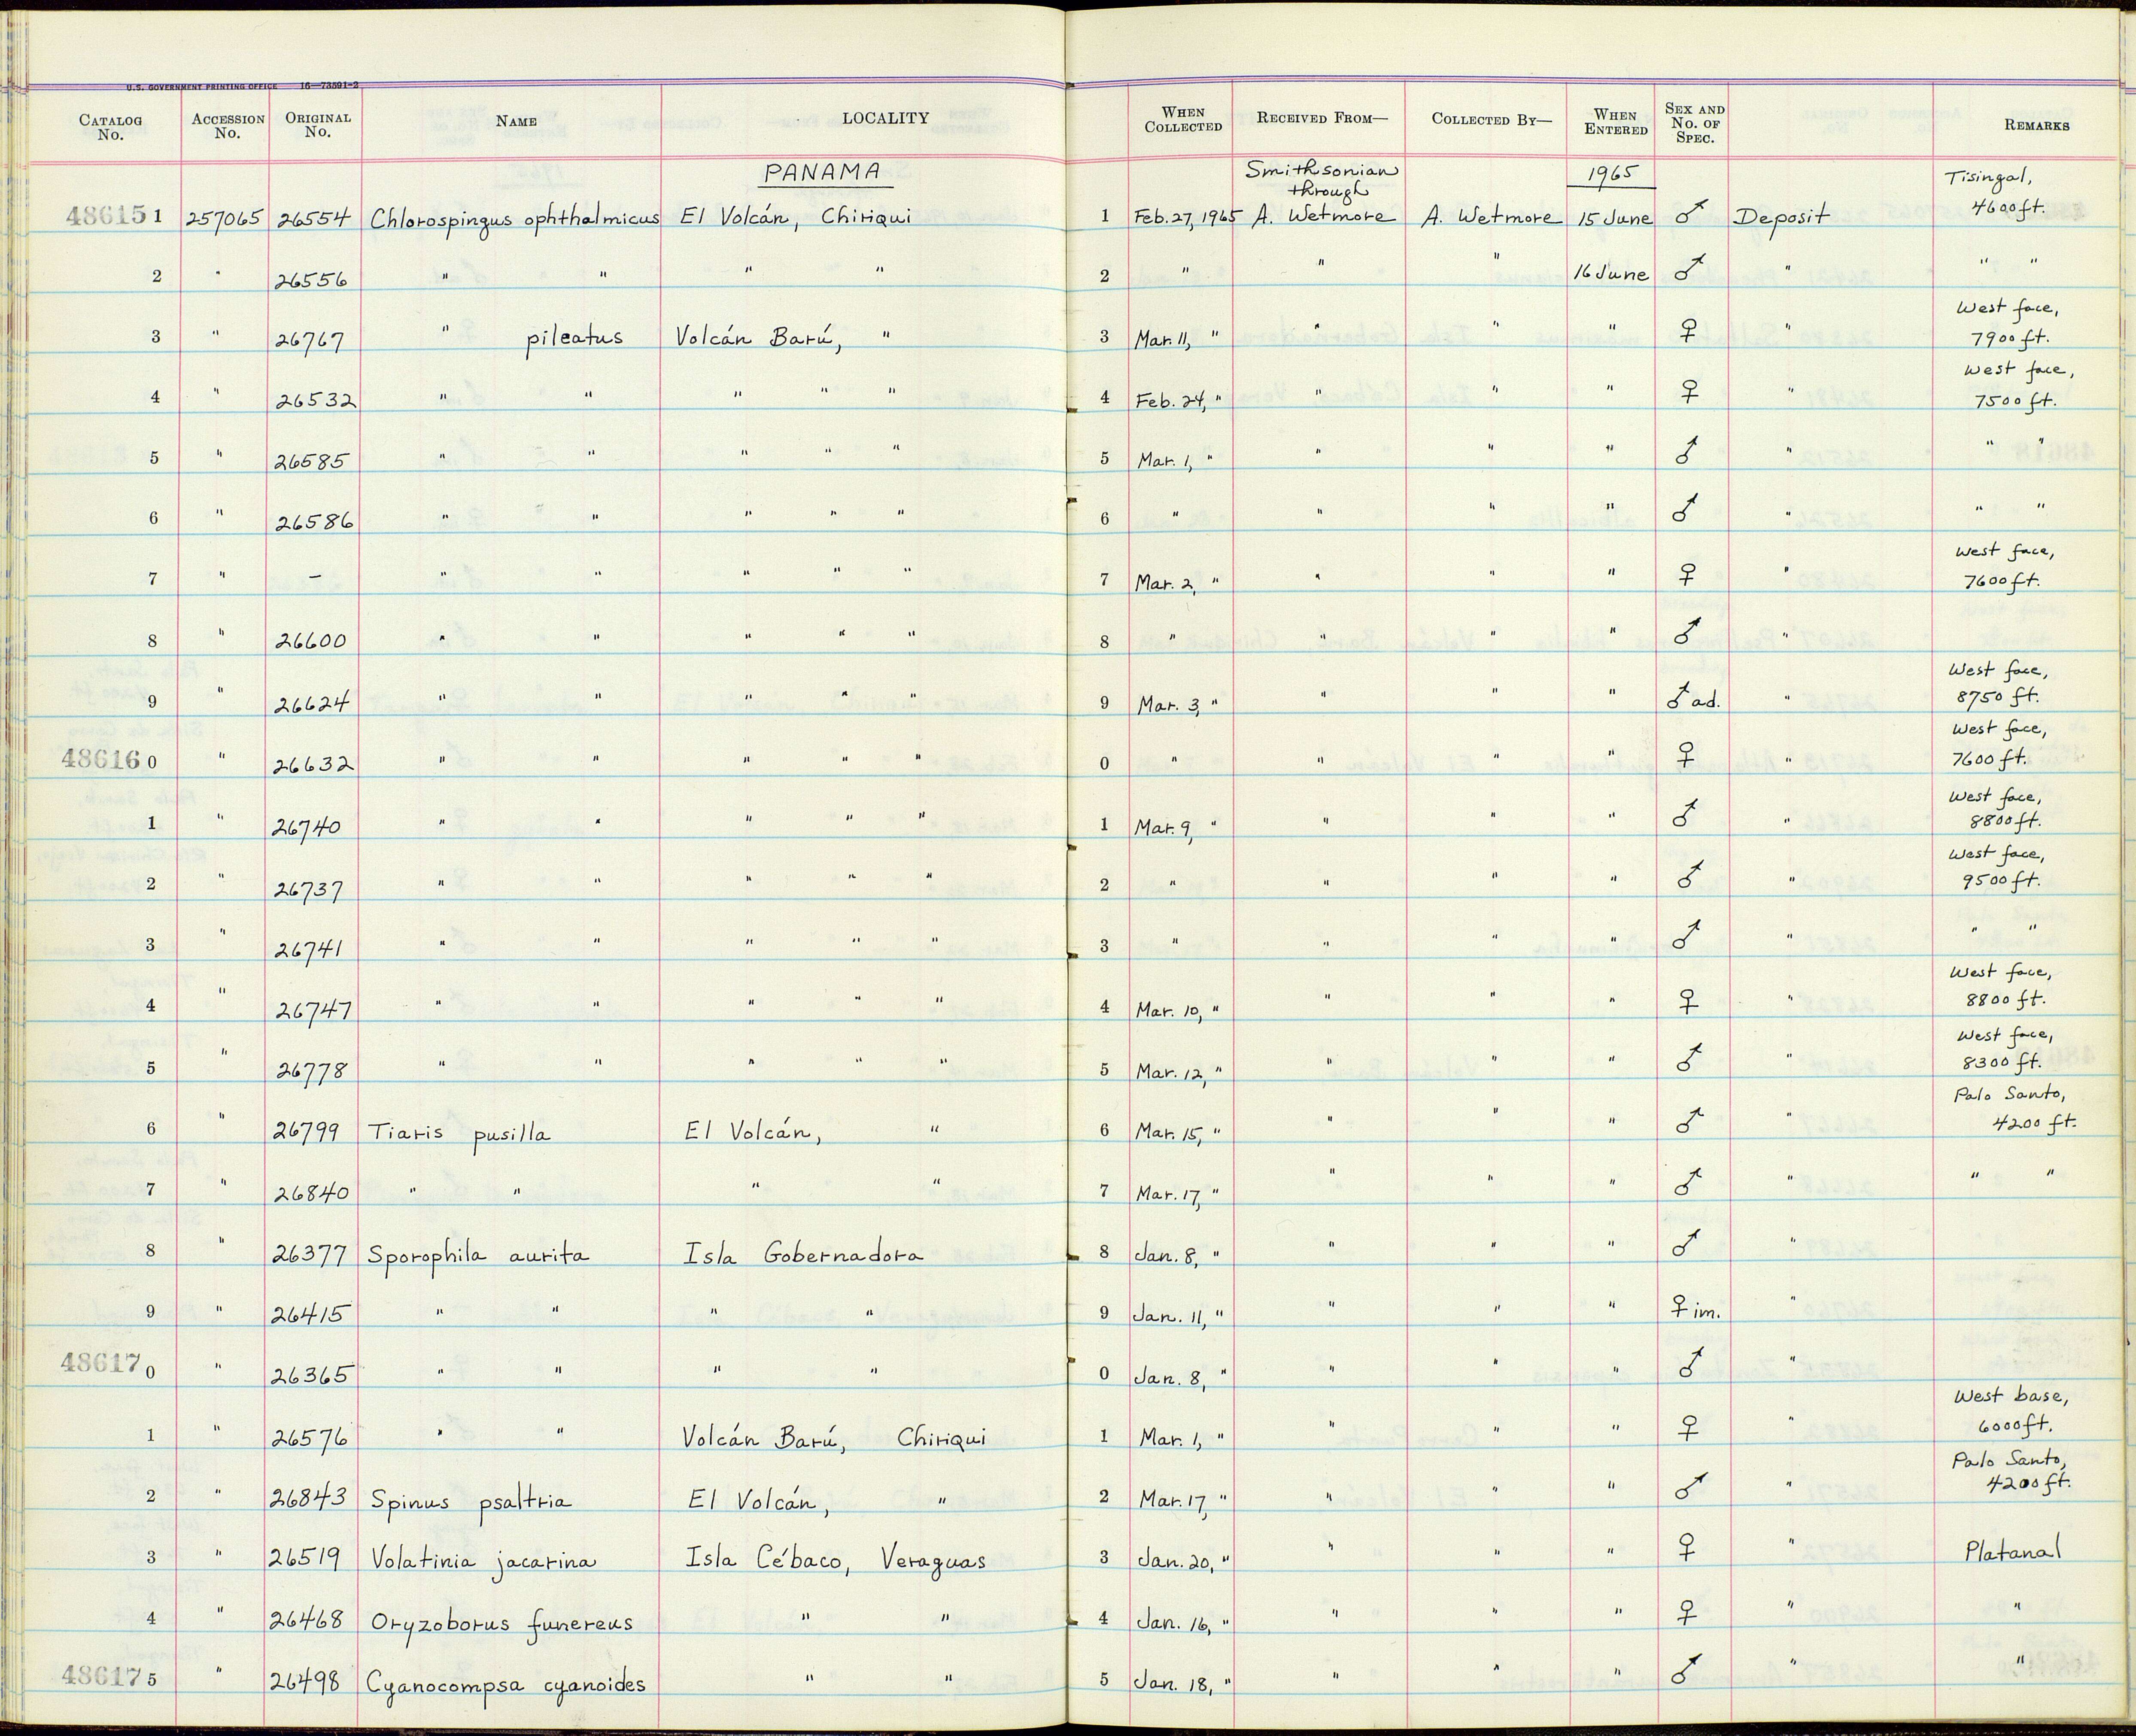 U.S. GOVERNMENT PRINTING OFFICE 16—73591-2
CATALOG No. ACCESSION No. ORIGINAL No. NAME LOCALITY WHEN COLLECTED RECEIVED FROM— COLLECTED BY— WHEN ENTERED SEX AND No. OF SPEC. REMARKS
PANAMA Smithsonian through 1965 Tisingal,
48615 1 257065 26554 Chlorospingus ophthalmicus El Volcán, Chiriqui 1 Feb. 27, 1965 A. Wetmore A. Wetmore 15 June ♂ Deposit 4600 ft.
2 " 26556 " " " " 2 " " " 16 June ♂ " " "
3 " 26767 " pileatus Volcán Barú, " 3 Mar. 11, " " " " ♀ " West face, 7900 ft.
4 " 26532 " " " " " 4 Feb. 24, " " " " ♀ " West face, 7500 ft.
5 " 26585 " " " " " 5 Mar. 1, " " " " ♂ " " "
6 " 26586 " " " " " 6 " " " " ♂ " " "
7 " – " " " " " 7 Mar. 2, " " " " ♀ " West face, 7600 ft.
8 " 26600 " " " " " 8 " " " " ♂ "
9 " 26624 " " " " " 9 Mar. 3, " " " " ♂ ad. " West face, 8750 ft.
48616 0 " 26632 " " " " " 0 " " " " ♀ " West face, 7600 ft.
1 " 26740 " " " " " 1 Mar. 9, " " " " ♂ " West face, 8800 ft.
2 " 26737 " " " " " 2 " " " " ♂ " West face, 9500 ft.
3 " 26741 " " " " " 3 " " " " ♂ " " "
4 " 26747 " " " " " 4 Mar. 10, " " " " ♀ " West face, 8800 ft.
5 " 26778 " " " " " 5 Mar. 12, " " " " ♂ " West face, 8300 ft.
6 " 26799 Tiaris pusilla El Volcán, " 6 Mar. 15, " " " " ♂ " Palo Santo, 4200 ft.
7 " 26840 " " " " 7 Mar. 17, " " " " ♂ " " "
8 " 26377 Sporophila aurita Isla Gobernadora 8 Jan. 8, " " " " ♂ "
9 " 26415 " " " " 9 Jan. 11, " " " " ♀ im. "
48617 0 " 26365 " " " " 0 Jan. 8, " " " " ♂ "
1 " 26576 " " Volcán Barú, Chiriqui 1 Mar. 1, " " " " ♀ " West base, 6000 ft.
2 " 26843 Spinus psaltria El Volcán, " 2 Mar. 17, " " " " ♂ " Palo Santo, 4200 ft.
3 " 26519 Volatinia jacarina Isla Cébaco, Veraguas 3 Jan. 20, " " " " ♀ " Platanal
4 " 26468 Oryzoborus funereus " " 4 Jan. 16, " " " " ♀ " "
48617 5 " 26498 Cyanocompsa cyanoides " " 5 Jan. 18, " " " " ♂ " "